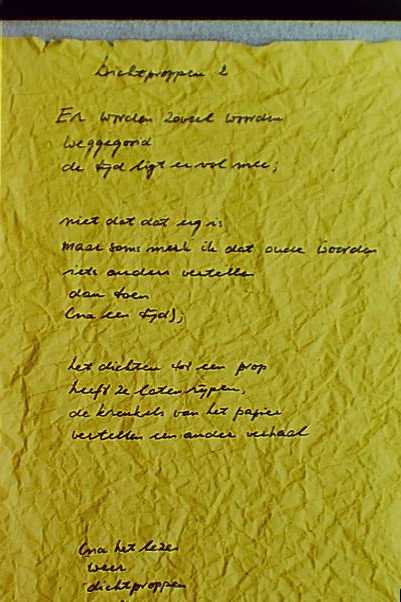 Dichtproppen 2
Er worden zoveel woorden
weggegooid
de tijd ligt er vol mee;
niet dat dat erg is
maar soms merk ik dat oude woorden
iets anders vertellen
dan toen
(na een tijd);
het dichten tot een prop
heeft ze laten rijpen,
de kreukels van het papier
vertellen een ander verhaal
(na het lezen
weer
dichtproppen